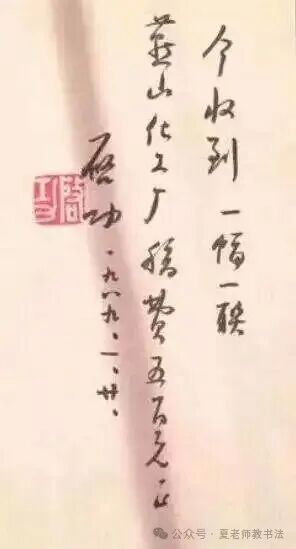 今收到一幅一联
燕山化工厂稿费五百元正
启功 一九八九、一、廿、
启功
公众号·夏老师教书法